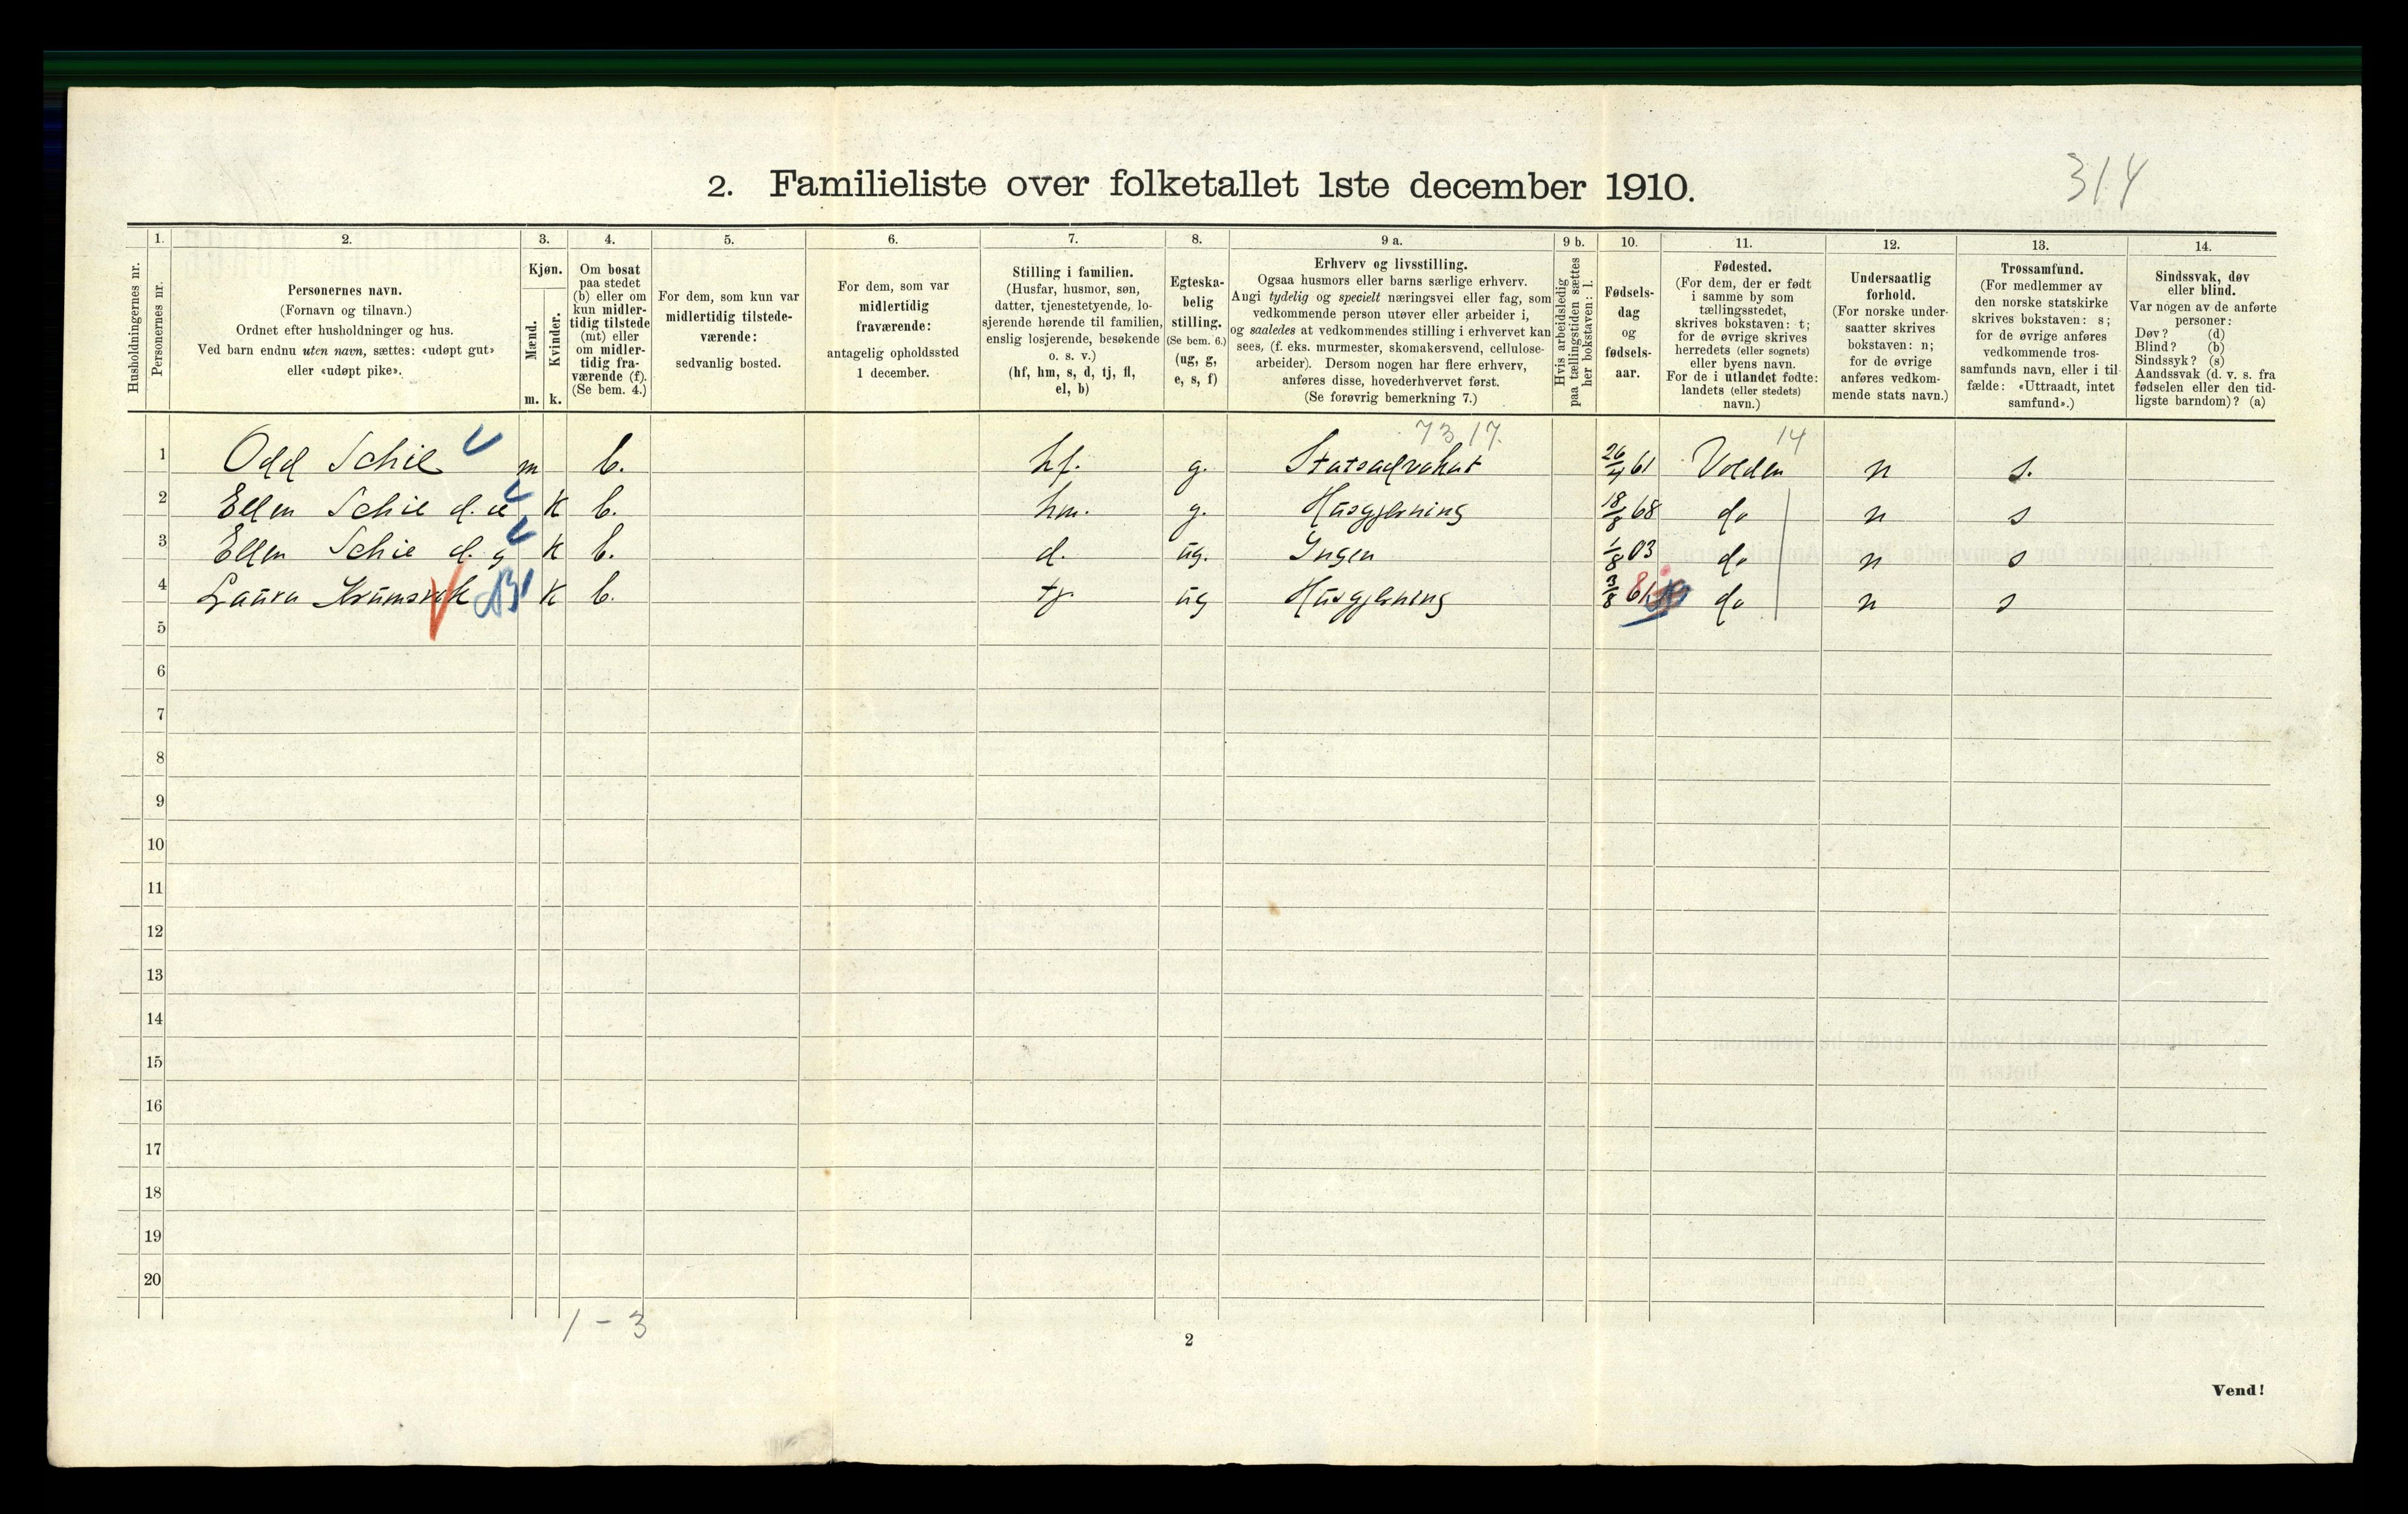 314
2. Familieliste over folketallet 1ste december 1910.
Husholdningernes nr.
1.
Personernes nr.
2.
Personernes navn.
(Fornavn og tilnavn.)
Ordnet efter husholdninger og hus.
Ved barn endnu uten navn, sættes: «udøpt gut»
eller «udøpt pike».
3.
Kjøn.
Mænd.
Kvinder.
m. k.
4.
Om bosat
paa stedet
(b) eller om
kun midler-
tidig tilstede
(mt) eller
om midler-
tidig fra-
værende (f).
(Se bem. 4.)
5.
For dem, som kun var
midlertidig tilstede-
værende:
sedvanlig bosted.
6.
For dem, som var
midlertidig
fraværende:
antagelig opholdssted
1 december.
7.
Stilling i familien.
(Husfar, husmor, søn,
datter, tjenestetyende, lo-
sjerende hørende til familien,
enslig losjerende, besøkende
o. s. v.)
(hf, hm, s, d, tj, fl,
el, b)
8.
Egteska-
belig
stilling.
(Se bem. 6.)
(ug, g,
e, s, f)
9 a.
Erhverv og livsstilling.
Ogsaa husmors eller barns særlige erhverv.
Angi tydelig og specielt næringsvei eller fag, som
vedkommende person utøver eller arbeider i,
og saaledes at vedkommendes stilling i erhvervet kan
sees, (f. eks. murmester, skomakersvend, cellulose-
arbeider). Dersom nogen har flere erhverv,
anføres disse, hovederhvervet først.
(Se forøvrig bemerkning 7.)
9 b.
Hvis arbeidsledig
paa tællingstiden sættes
her bokstaven: l.
10.
Fødsels-
dag
og
fødsels-
aar.
11.
Fødested.
(For dem, der er født
i samme by som
tællingsstedet,
skrives bokstaven: t;
for de øvrige skrives
herredets (eller sognets)
eller byens navn.
For de i utlandet fødte:
landets (eller stedets)
navn.)
12.
Undersaatlig
forhold.
(For norske under-
saatter skrives
bokstaven: n;
for de øvrige
anføres vedkom-
mende stats navn.)
13.
Trossamfund.
(For medlemmer av
den norske statskirke
skrives bokstaven: s;
for de øvrige anføres
vedkommende tros-
samfunds navn, eller i til-
fælde: «Uttraadt, intet
samfund».)
14.
Sindssvak, døv
eller blind.
Var nogen av de anførte
personer:
Døv? (d)
Blind? (b)
Sindssyk? (s)
Aandssvak (d. v. s. fra
fødselen eller den tid-
ligste barndom)? (a)
7317. 14
1 Odd Schie m b. hf. g. Statsadvokat 26/4 61 Volden n s.
2 Ellen Schie d. æ K b. hm. g. Husgjerning 18/8 68 do n s
3 Ellen Schie d. y K b. d. ug. Ingen 1/8 03 do n s
4 Laura Krumsvik K b. tj. ug Husgjerning 3/8 81 do n s
5
6
7
8
9
10
11
12
13
14
15
16
17
18
19
20
1-3
2
Vend!